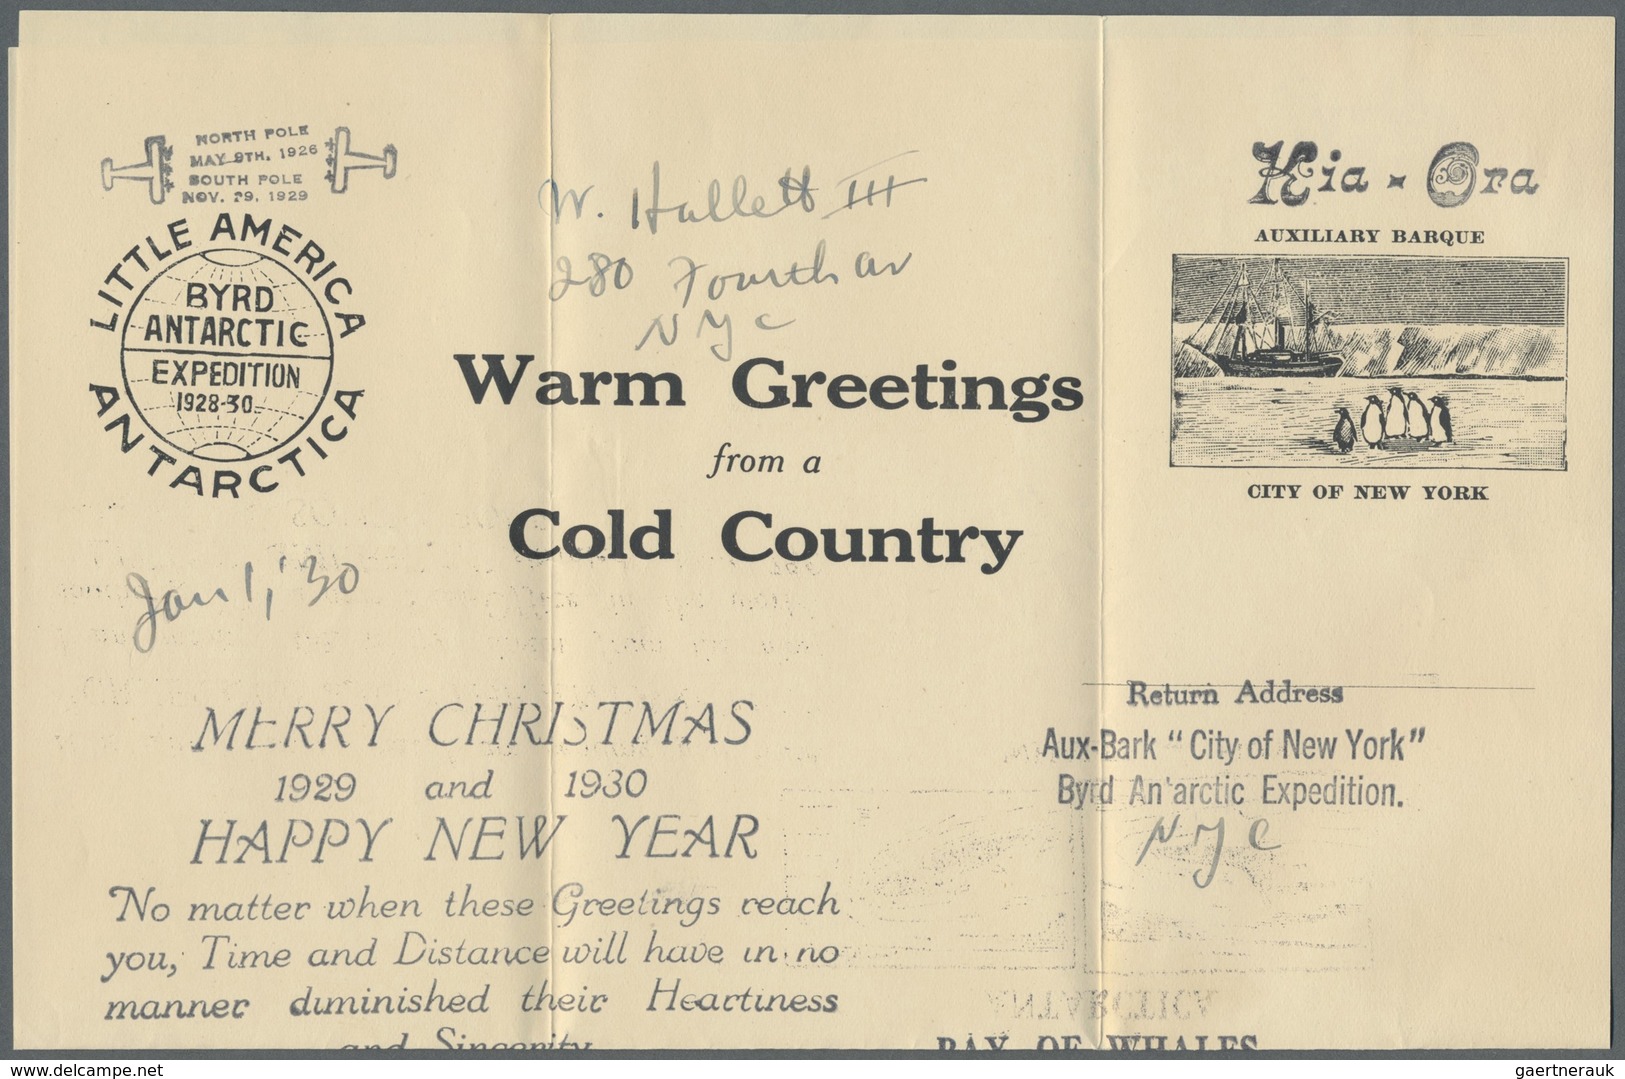 NORTH POLE
MAY 9TH. 1926
SOUTH POLE
NOV. 29. 1929
LITTLE AMERICA
BYRD
ANTARCTIC
EXPEDITION
1928-30
ANTARCTICA
W. Hallett III
280 Fourth av
NYC
Warm Greetings
from a
Cold Country
Kia - Ora
AUXILIARY BARQUE
CITY OF NEW YORK
Jan 1, '30
MERRY CHRISTMAS
1929 and 1930
HAPPY NEW YEAR
No matter when these Greetings reach
you, Time and Distance will have in no
manner diminished their Heartiness
and Sincerity
Return Address
Aux-Bark "City of New York"
Byrd An'arctic Expedition.
NYC
ANTARCTICA
BAY OF WHALES
Delcampe.net
gaertnerauk